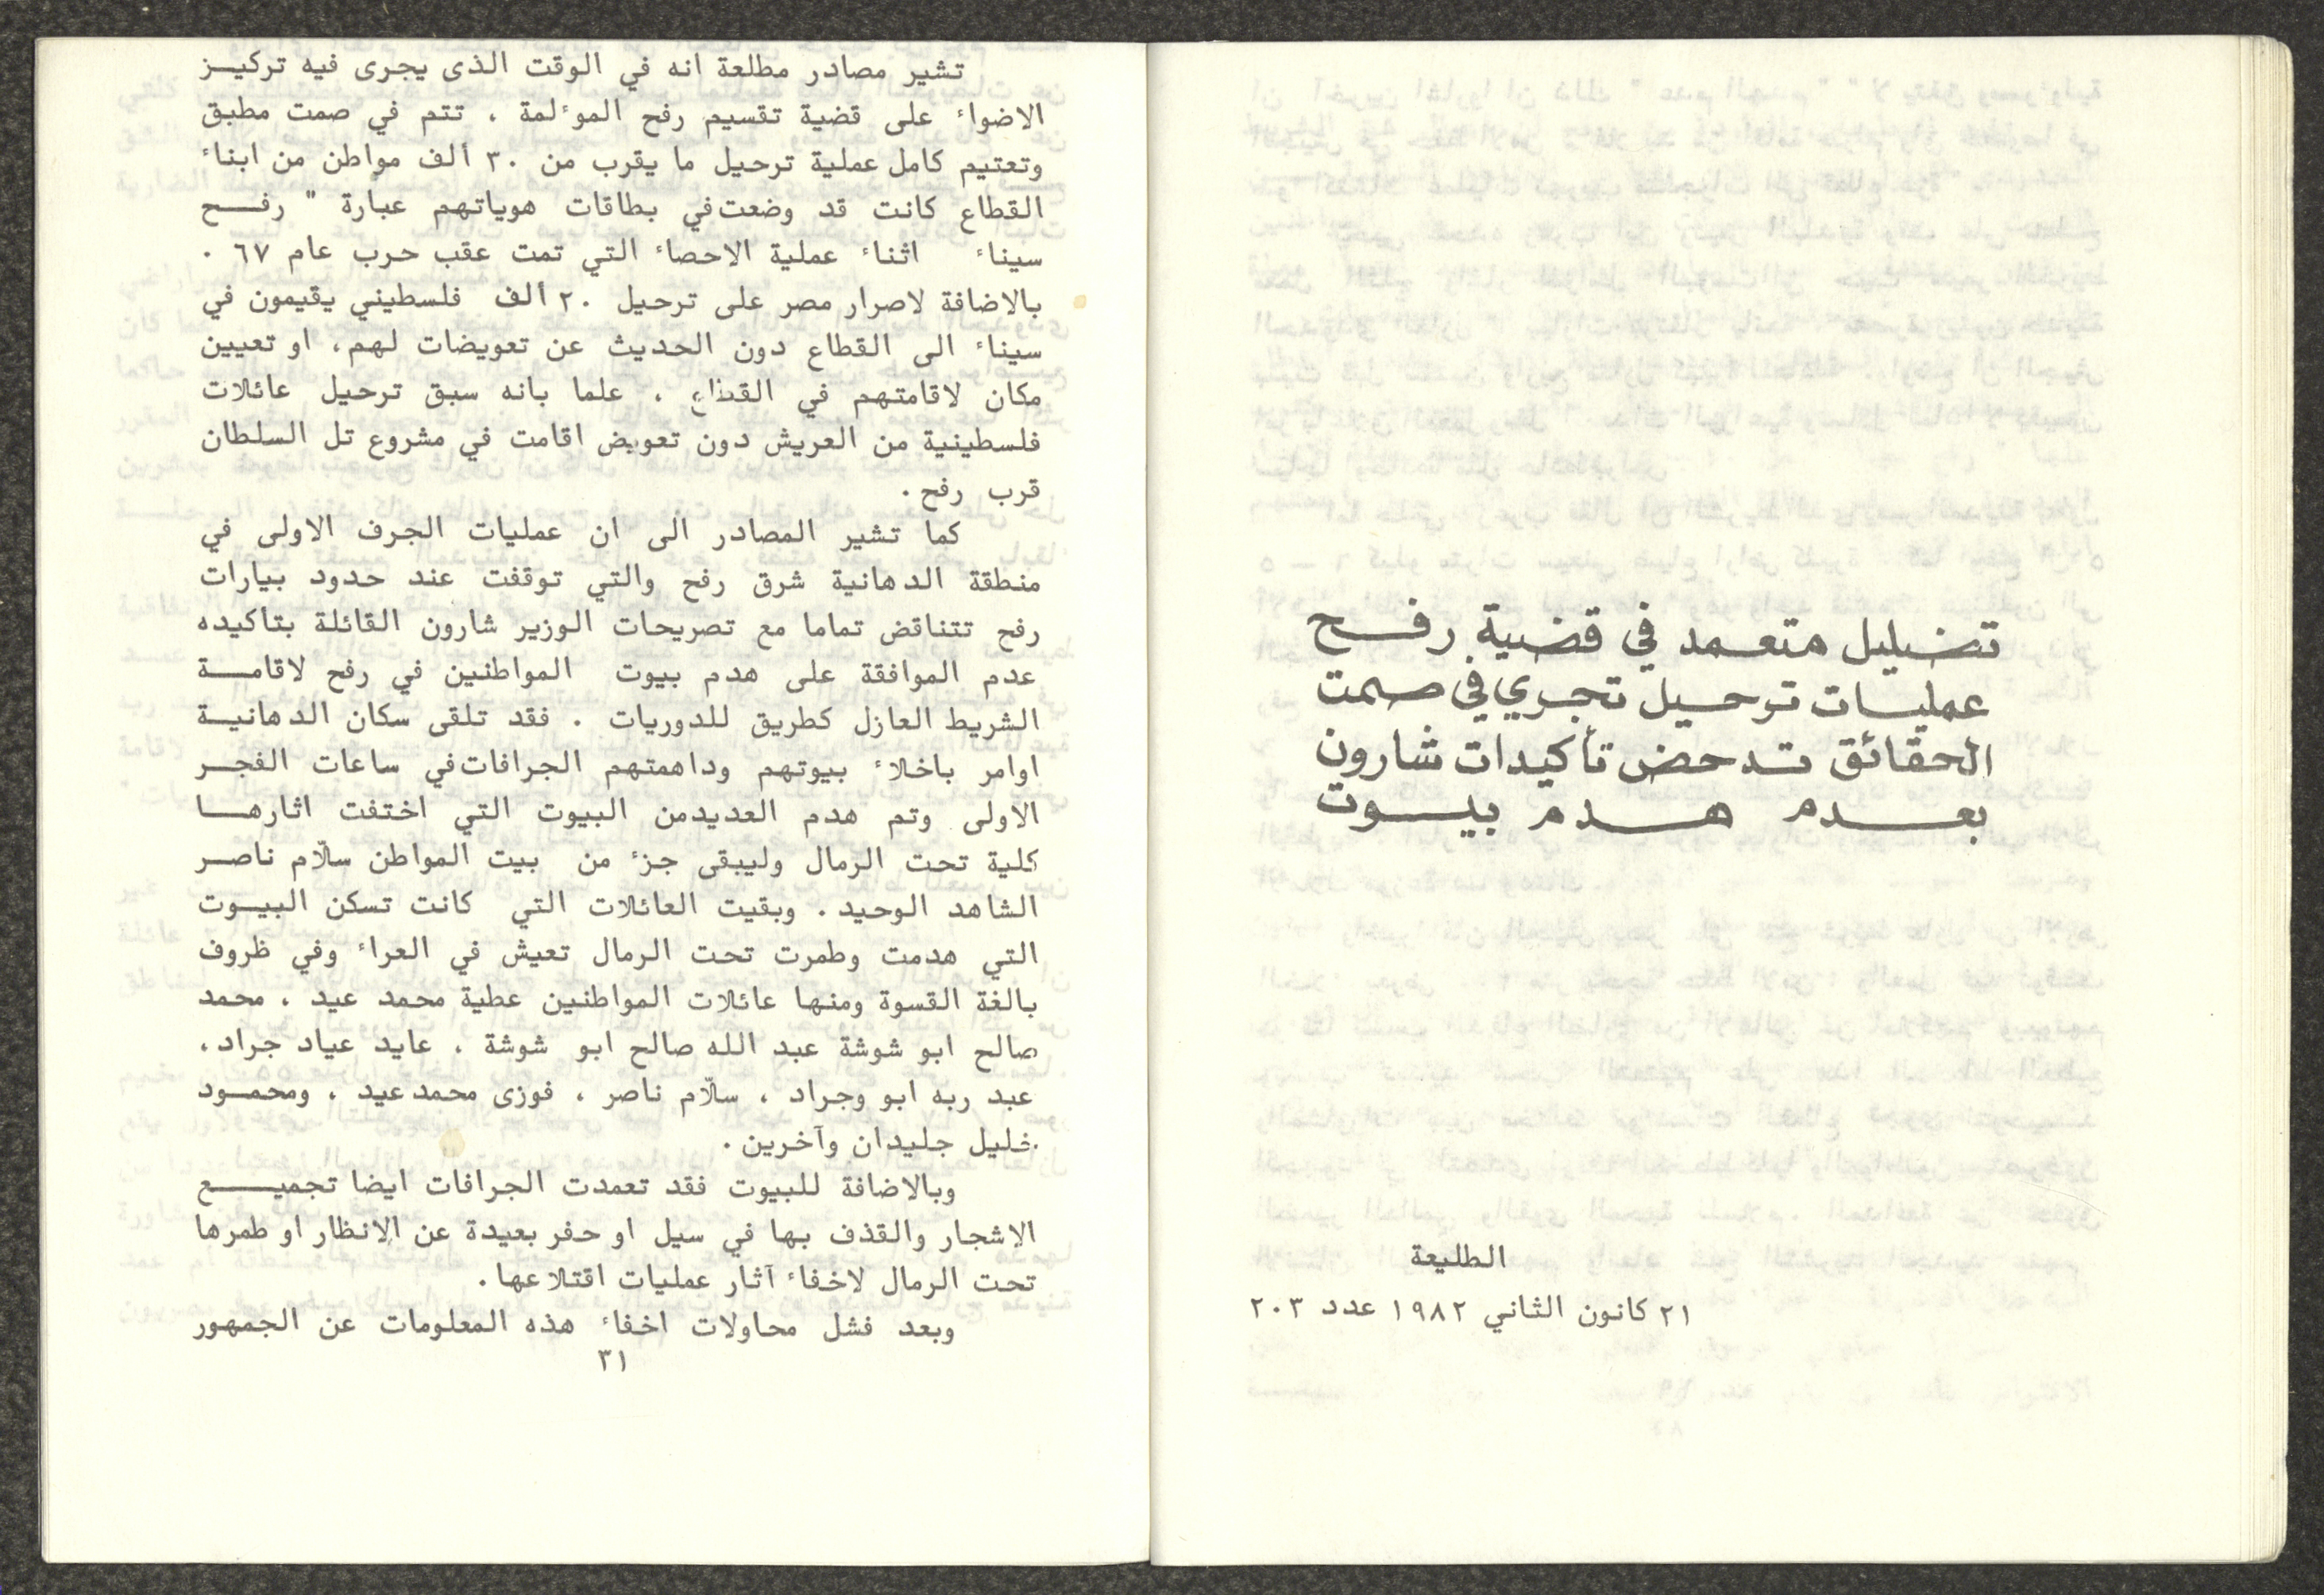 تضليل متعمد في قضية رفح
عمليات ترحيل تجري في صمت
الحقائق تدحض تأكيدات شارون
بعدم هدم بيوت
الطليعة
٢١ كانون الثاني ١٩٨٢ عدد ٢٠٣
تشير مصادر مطلعة انه في الوقت الذى يجرى فيه تركيز
الاضواء على قضية تقسيم رفح الموءلمة ، تتم في صمت مطبق
وتعتيم كامل عملية ترحيل ما يقرب من ٣٠ ألف مواطن من ابناء
القطاع كانت قد وضعت في بطاقات هوياتهم عبارة " رفح
سيناء اثناء عملية الاحصاء التي تمت عقب حرب عام ٦٧ .
بالاضافة لاصرار مصر على ترحيل ٢٠ ألف فلسطيني يقيمون في
سيناء الى القطاع دون الحديث عن تعويضات لهم ، او تعيين
مكان لاقامتهم في القطاع ، علما بانه سبق ترحيل عائلات
فلسطينية من العريش دون تعويض اقامت في مشروع تل السلطان
قرب رفح .
كما تشير المصادر الى ان عمليات الجرف الاولى في
منطقة الدهانية شرق رفح والتي توقفت عند حدود بيارات
رفح تتناقض تماما مع تصريحات الوزير شارون القائلة بتاكيده
عدم الموافقة على هدم بيوت المواطنين في رفح لاقامة
الشريط العازل كطريق للدوريات . فقد تلقى سكان الدهانية
اوامر باخلاء بيوتهم وداهمتهم الجرافات في ساعات الفجر
الاولى وتم هدم العديد من البيوت التي اختفت اثارها
كلية تحت الرمال وليبقى جزء من بيت المواطن سلّام ناصر
الشاهد الوحيد . وبقيت العائلات التي كانت تسكن البيوت
التي هدمت وطمرت تحت الرمال تعيش في العراء وفي ظروف
بالغة القسوة ومنها عائلات المواطنين عطية محمد عيد ، محمد
صالح ابو شوشة عبد الله صالح ابو شوشة ، عايد عياد جراد ،
عبد ربه ابو وجراد ، سلّام ناصر ، فوزى محمد عيد ، ومحمود
خليل جليدان وآخرين .
وبالاضافة للبيوت فقد تعمدت الجرافات ايضا تجميع
الاشجار والقذف بها في سيل او حفر بعيدة عن الانظار او طمرها
تحت الرمال لاخفاء آثار عمليات اقتلاعها .
وبعد فشل محاولات اخفاء هذه المعلومات عن الجمهور
٣١